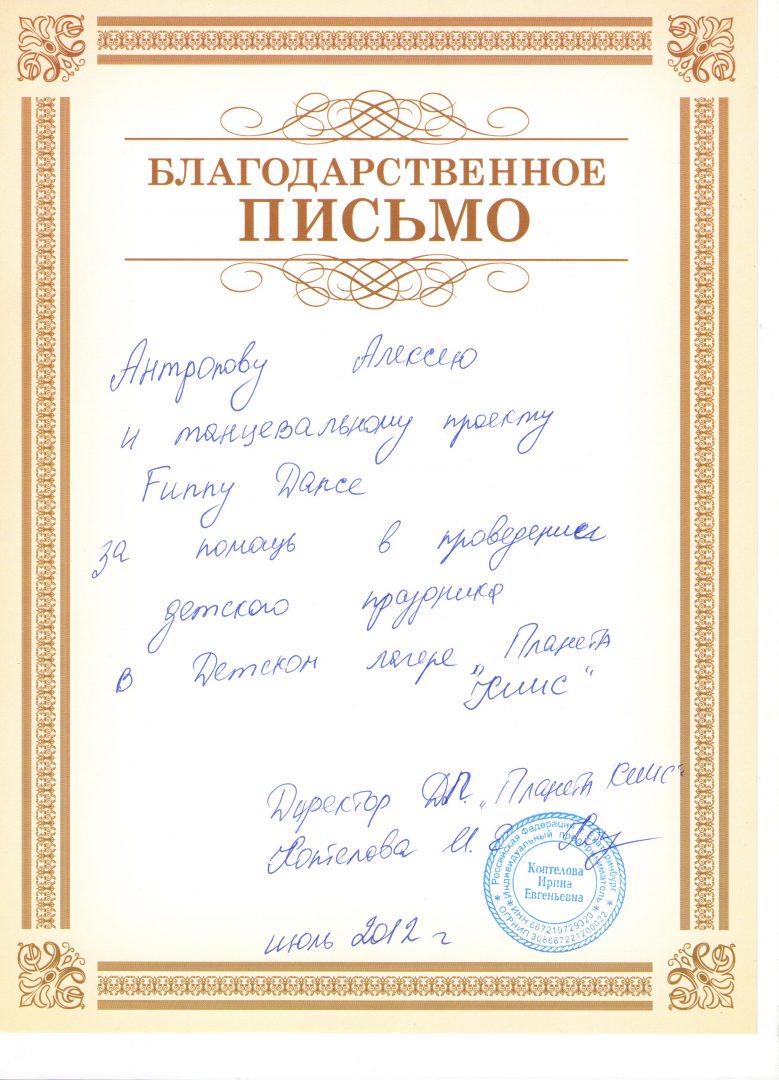 БЛАГОДАРСТВЕННОЕ
ПИСЬМО
Антропову Алексею
и танцевальному проекту
Funny Dance
за помощь в проведении
детского праздника
в Детском лагере Планета
"КИИС"
Директор ДЛ. „Планета КИИС"
Коптелова И. Е.
июль 2012 г
Российская Федерация г. Екатеринбург
Индивидуальный предприниматель
Коптелова
Ирина
Евгеньевна
ИНН 667219729320
ОГРНИП 308667221200022